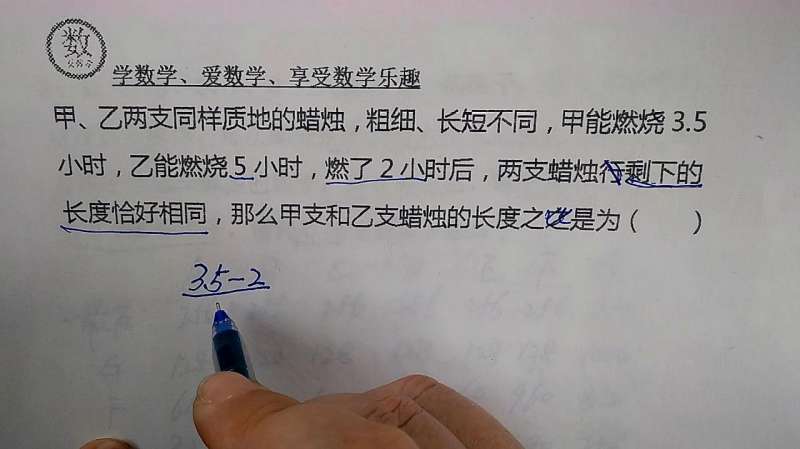 数
学数学、爱数学、享受数学乐趣
甲、乙两支同样质地的蜡烛，粗细、长短不同，甲能燃烧 3.5
小时，乙能燃烧 5 小时，燃了 2 小时后，两支蜡烛剩下的
长度恰好相同，那么甲支和乙支蜡烛的长度之是为（ ）
3.5-2